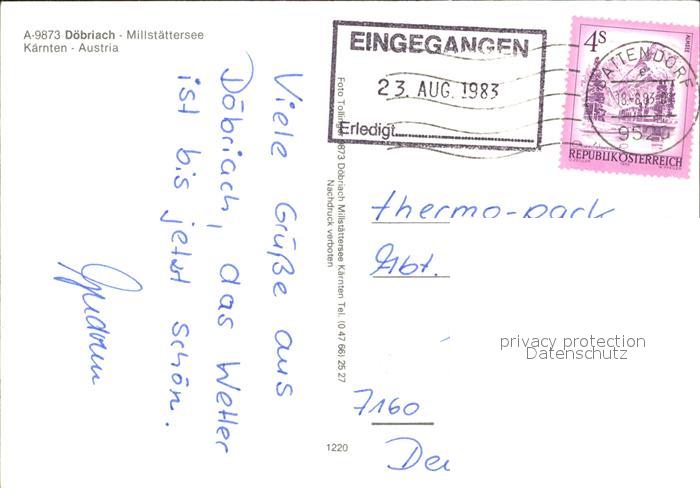 A-9873 Döbriach - Millstättersee
Kärnten - Austria
Viele Grüße aus
Döbriach, das Wetter
ist bis jetzt schön.
Gudrun
Foto Tollinger 9873 Döbriach Millstättersee Kärnten Tel. (0 47 66) 25 27
Nachdruck verboten
1220
EINGEGANGEN
23. AUG. 1983
Erledigt
4S
ALMSEE
REPUBLIK ÖSTERREICH
SATTENDORF
18.-8.83
952
thermo-park
Abt.
privacy protection
Datenschutz
7160